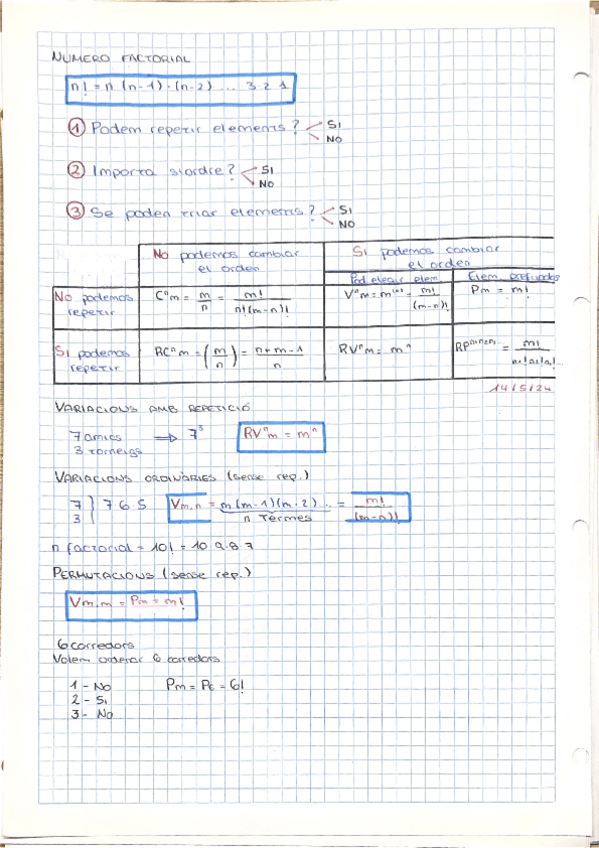 NUMERO FACTORIAL
n! = n · (n-1) · (n-2) ... 3 2 1
① Podem repetir elements? SI
NO
② Importa s'ordre? SI
NO
③ Se poden triar elements? SI
NO
No podemos cambiar el orden
Si podemos cambiar el orden
Pod elegir elem.
Elem. prefijados
No podemos repetir
Cⁿm = m/n = m!/n!(m-n)!
Vⁿm = m⁽ⁿ⁾ = m!/(m-n)!
Pm = m!
Si podemos repetir
RCⁿm = (m/n) = n+m-1/n
RVⁿm = mⁿ
14/5/24
VARIACIONS AMB REPETICIÓ
7 amics ⇒ 7³
3 tornejos
RVⁿm = mⁿ
VARIACIONS ORDINÀRIES (sense rep.)
7
3 } 7 6 5
Vm,n = m(m-1)(m-2)... = m!/(m-n)!
n Termes
n factorial = 10! = 10 9 · 8 · 7
PERMUTACIONS (sense rep.)
Vm,m = Pm = m!
6 corredors
Volem ordenar 6 corredors
1 - No Pm = P6 = 6!
2 - Si
3 - No